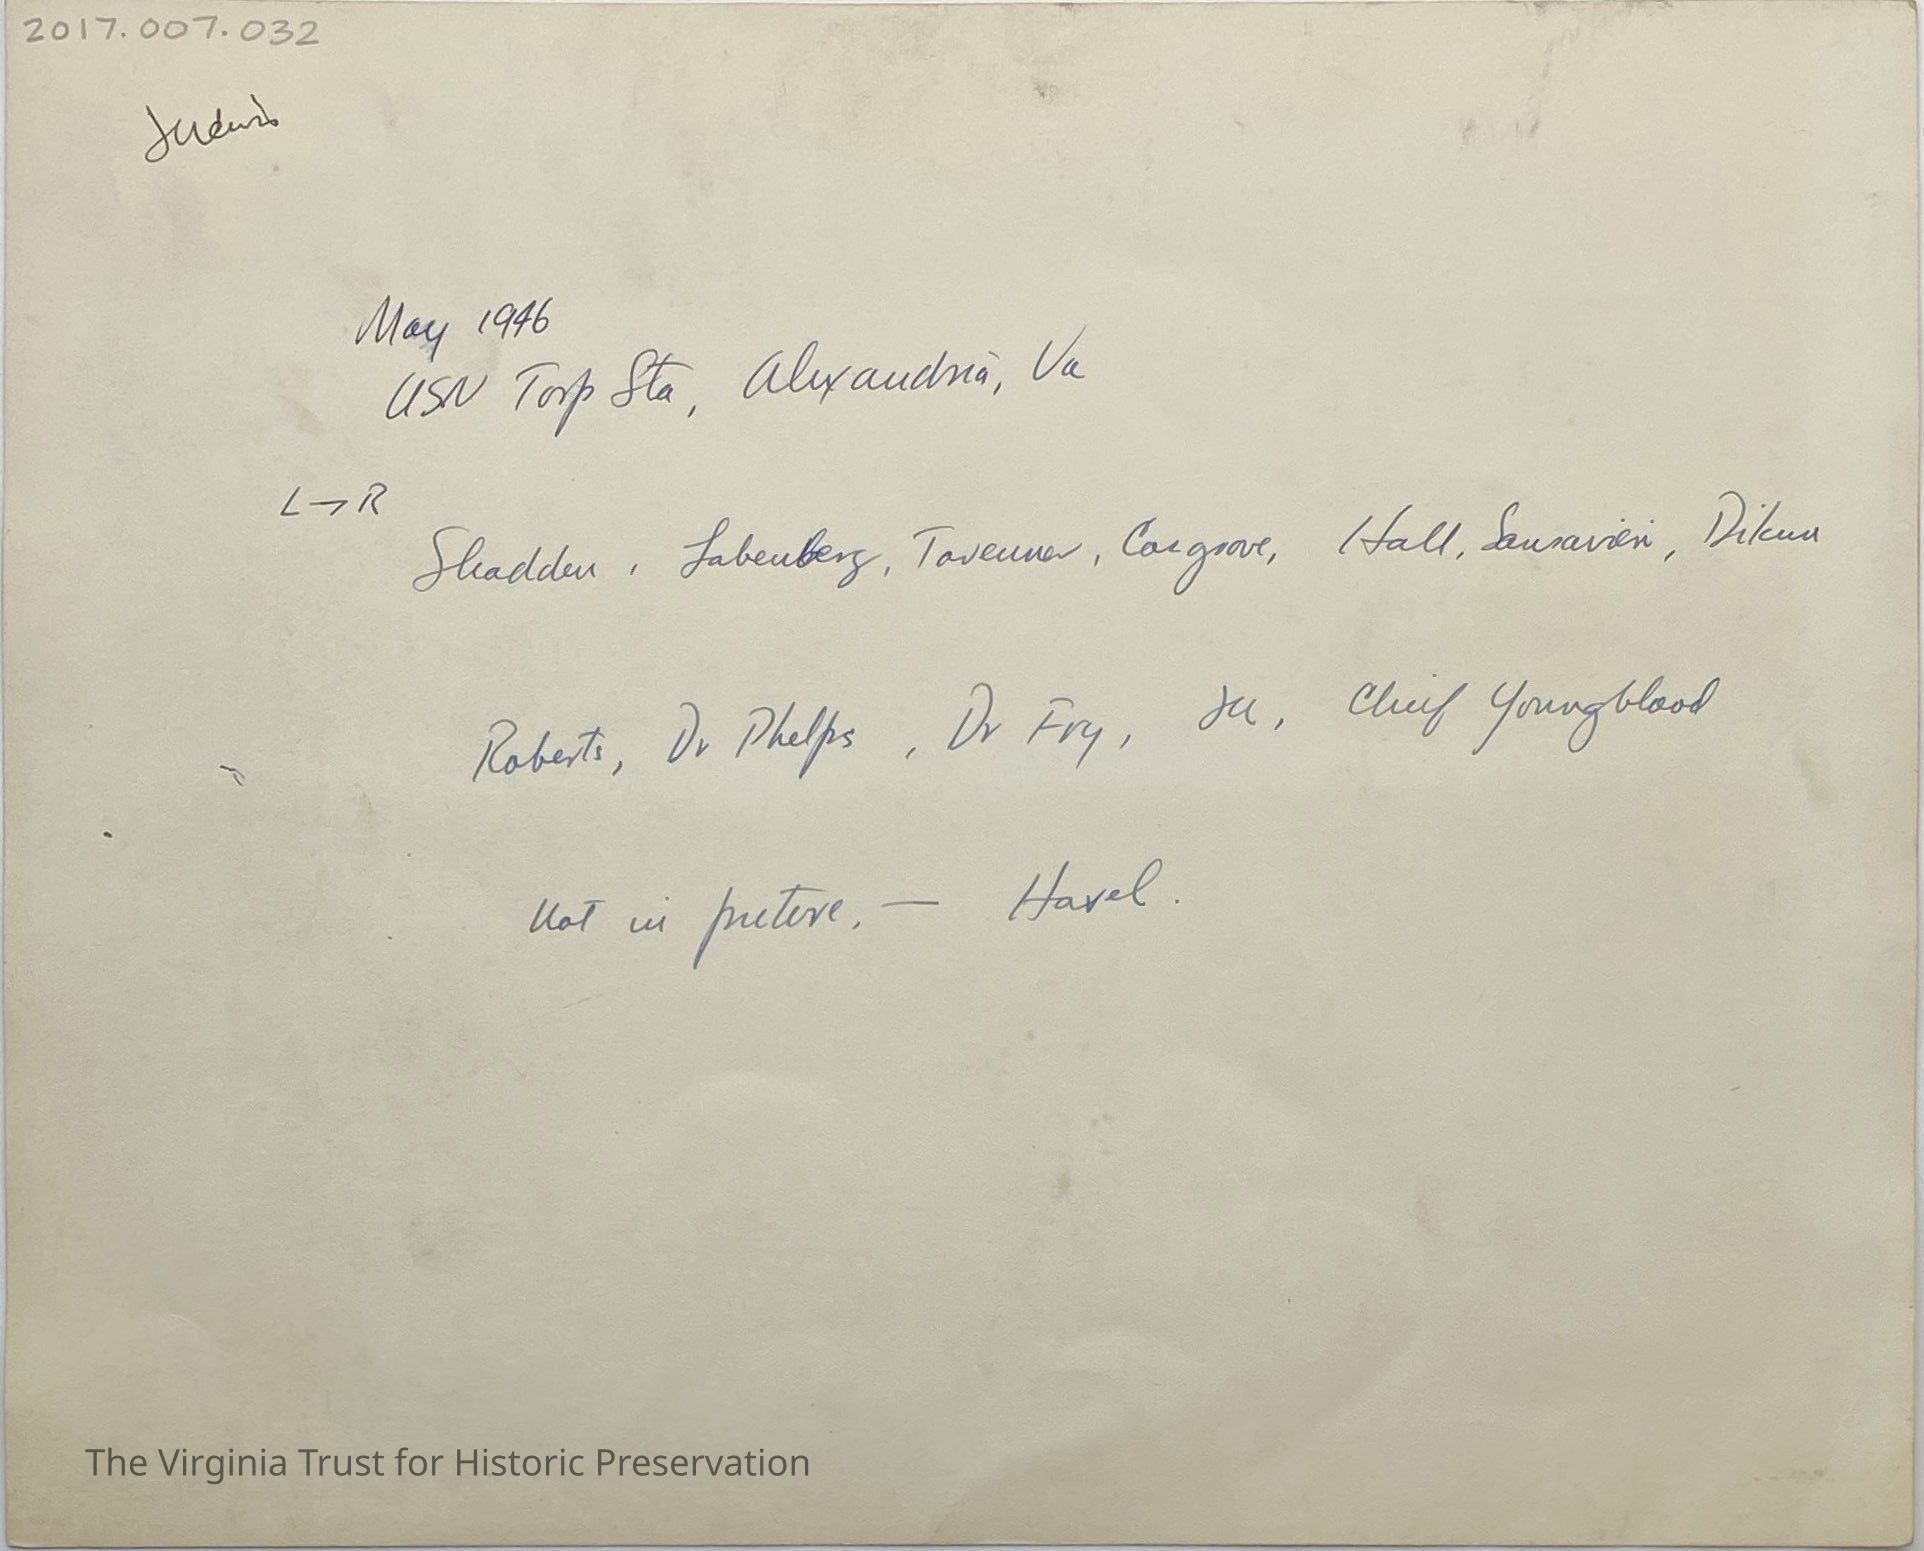 2017.007.032
May 1946
USN Torp Sta, Alexandria, Va
L→R
Shadden, Labenberg, Tavenner, Cosgrove, Hall, Sansavieri, Dikun
Roberts, Dr Phelps, Dr Fry, JU, Chief Youngblood
Not in picture. — Havel.
The Virginia Trust for Historic Preservation